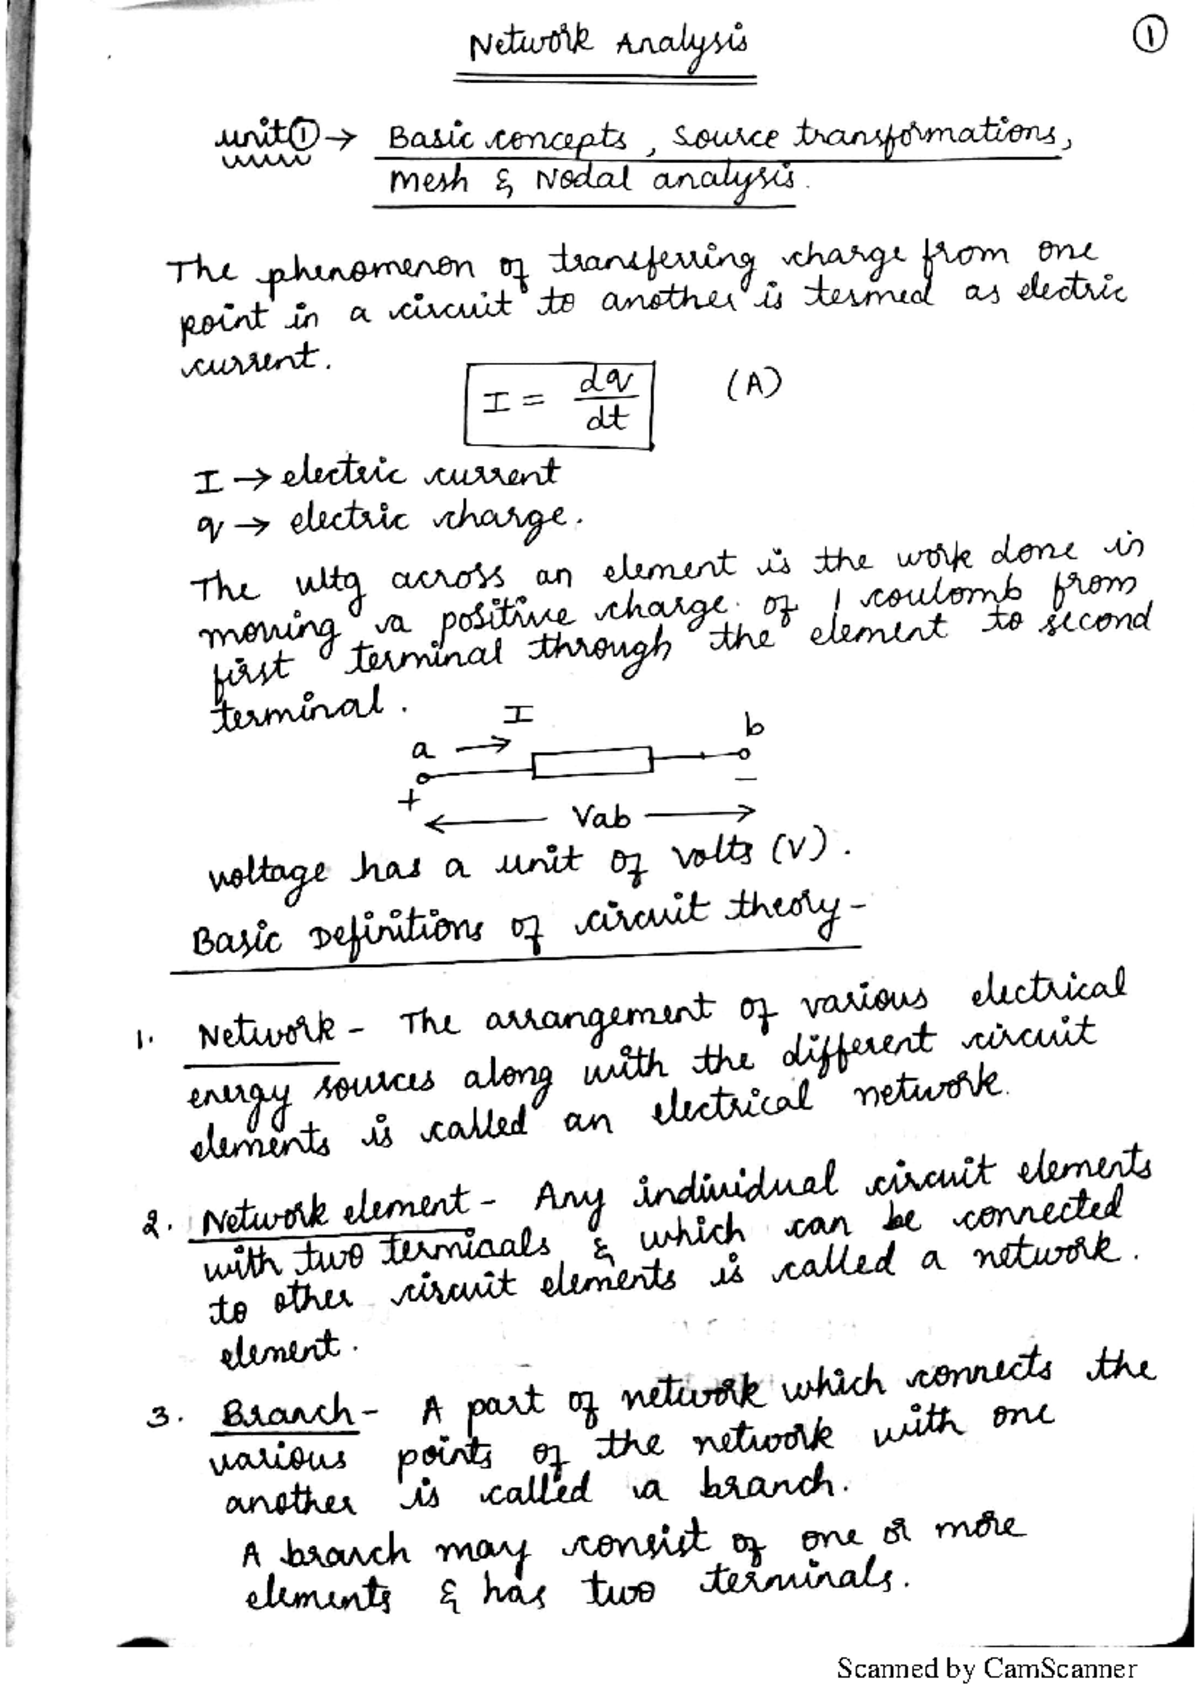 Network Analysis
1
unit 1 → Basic concepts, source transformations,
Mesh & Nodal analysis.
The phenomenon of transferring charge from one
point in a circuit to another is termed as electric
current.
I = dq/dt (A)
I → electric current
q → electric charge.
The vltg across an element is the work done in
moving a positive charge of 1 coulomb from
first terminal through the element to second
terminal.
I
a → b
+ −
← Vab →
voltage has a unit of volts (V).
Basic Definitions of circuit theory -
1. Network - The arrangement of various electrical
energy sources along with the different circuit
elements is called an electrical network.
2. Network element - Any individual circuit elements
with two terminals & which can be connected
to other circuit elements is called a network.
element.
3. Branch - A part of network which connects the
various points of the network with one
another is called a branch.
A branch may consist of one or more
elements & has two terminals.
Scanned by CamScanner